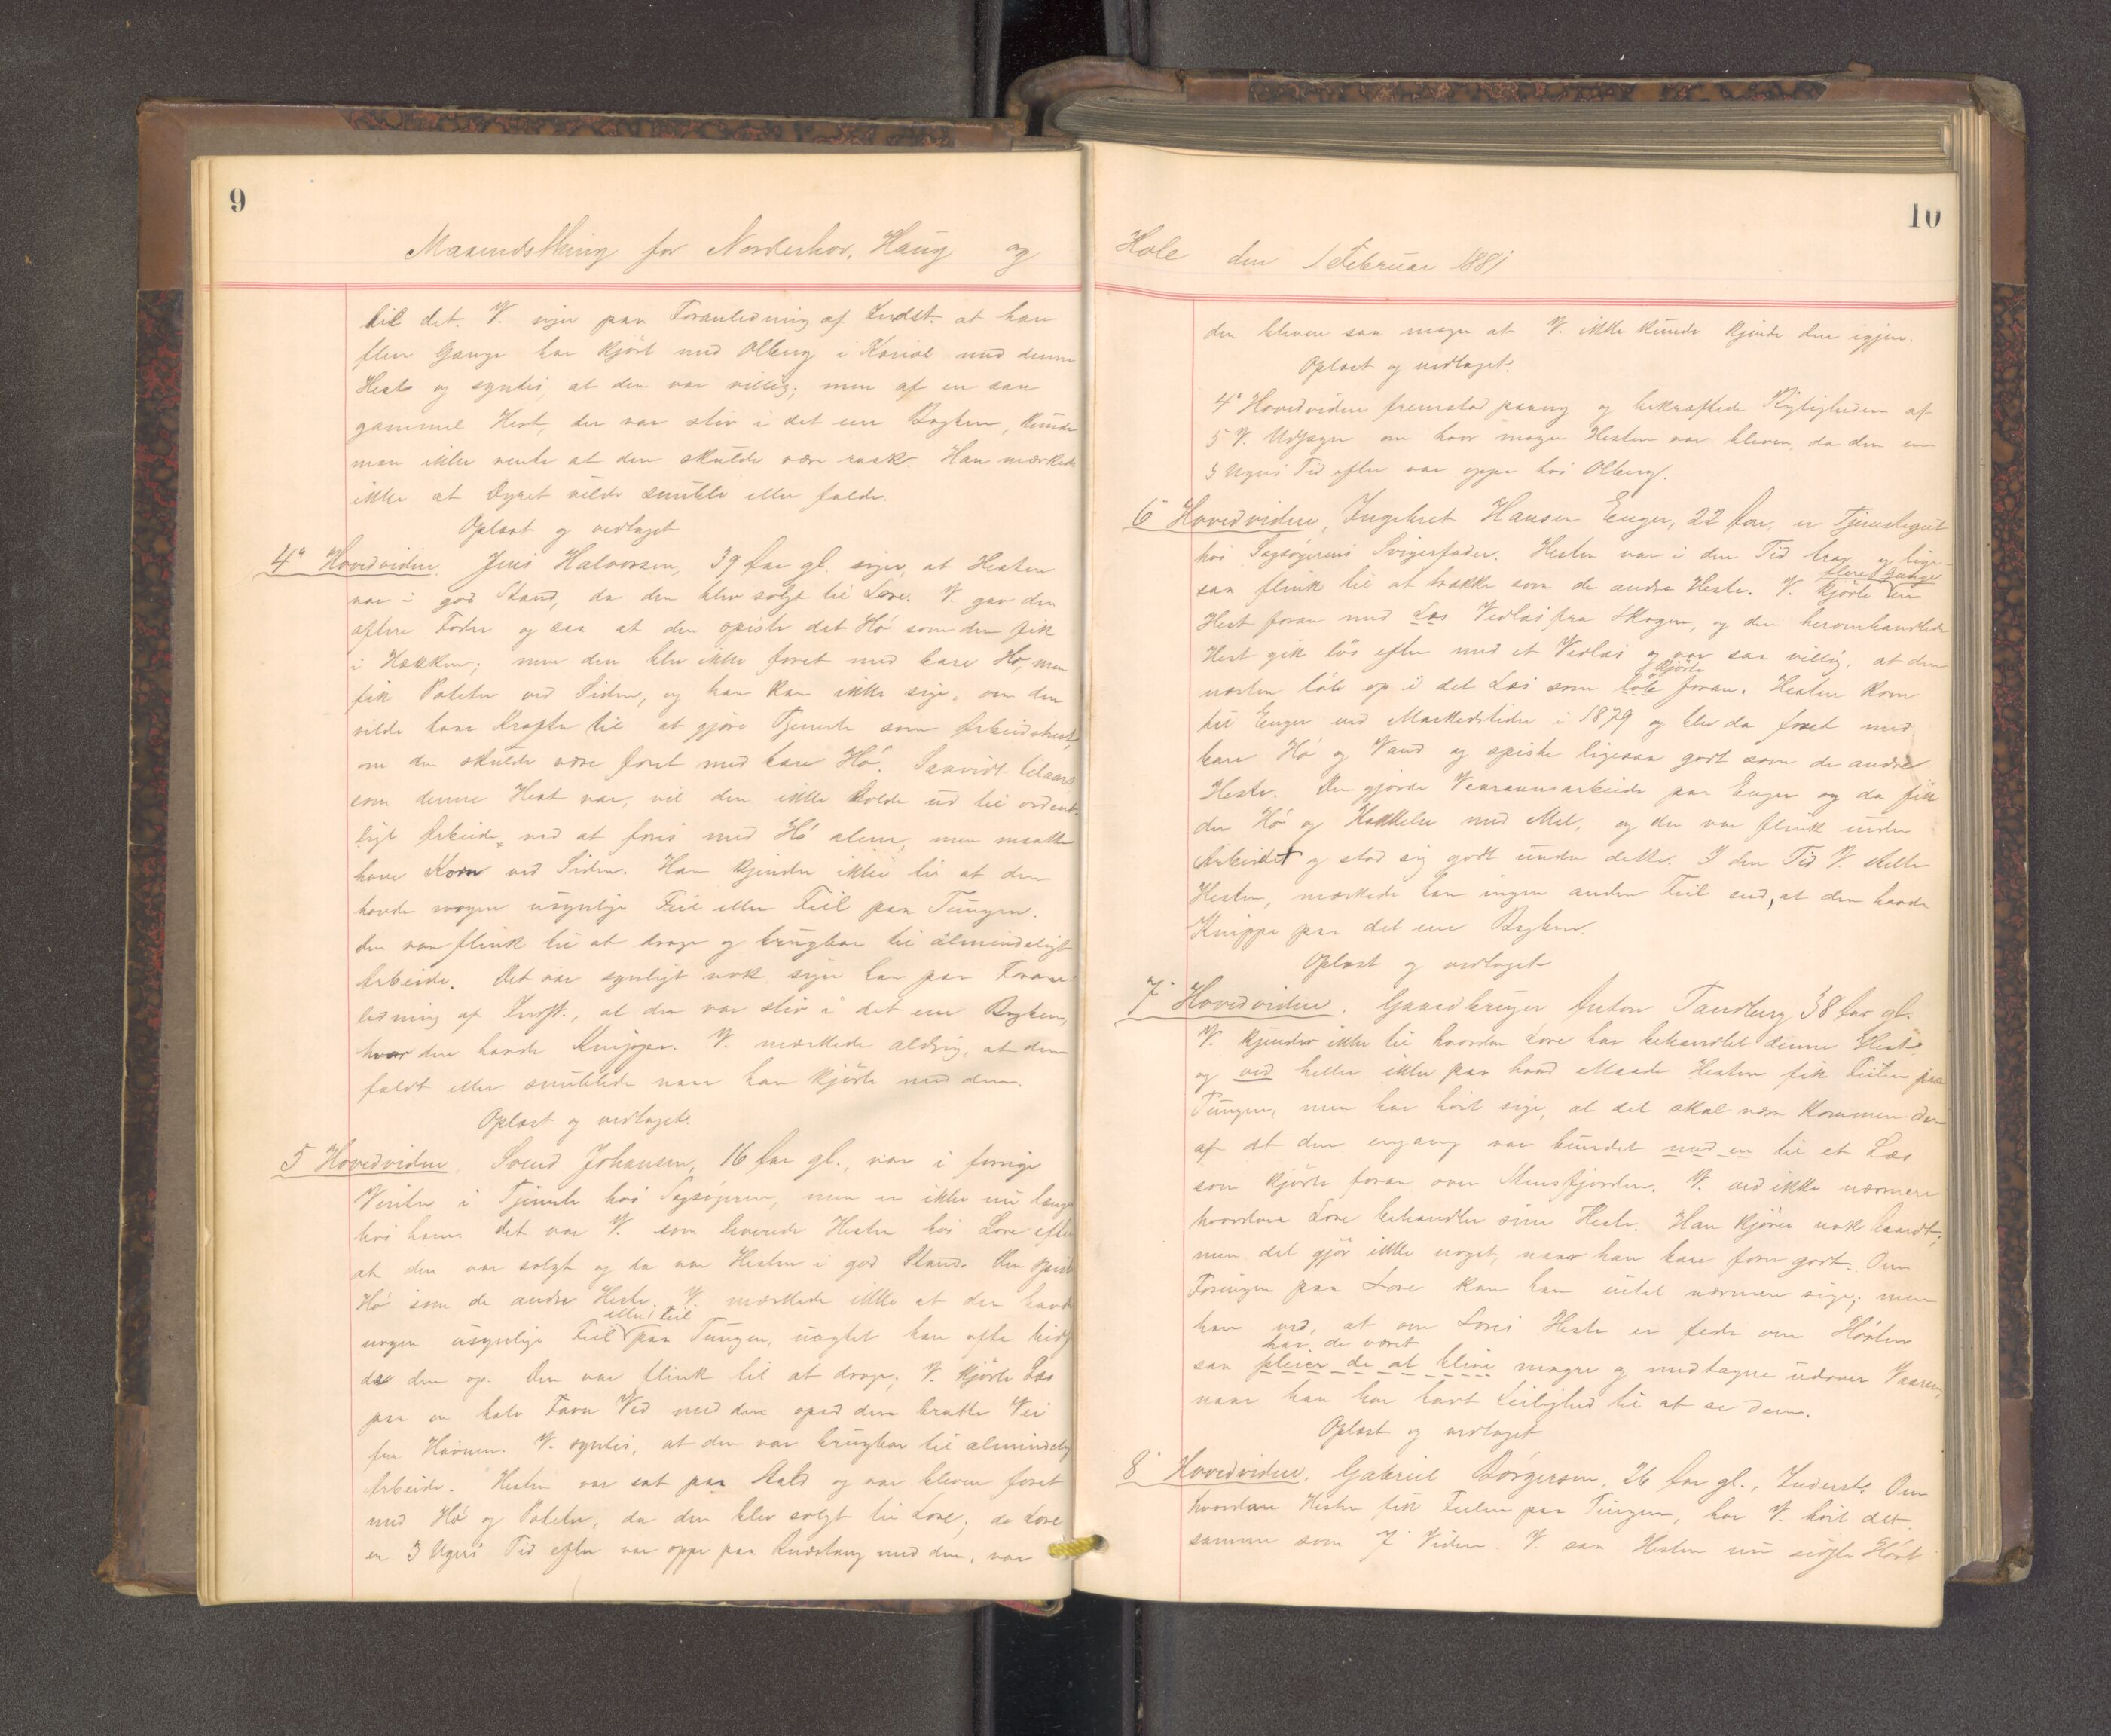 9
Maanedsthing for Norderhov, Haug og
til det. V. siger paa Foranledning af Indst. at han
flere Gange har kjørt med Olberg i Kariol med denne
Hest og syntes, at den var villig; men af en saa
gammel Hest, der var stiv i det ene Bagben, kunde
man ikke vente at den skulde være rask. Han mærkede
ikke at Dyret vilde snuble eller falde.
Oplæst og vedtaget
4de Hovedvidne. Jens Halvorsen, 39 Aar gl. siger, at Hesten
var i god Stand, da den blev solgt til Lore. V. gav den
oftere Foder og saa at den spiste det Hø som den fik
i Hækken; men den blev ikke foret med bare Hø, men
fik Poteter ved Siden, og han kan ikke sige, om den
vilde have Kræfter til at gjøre Tjeneste som Arbeidshest,
om den skulde være foret med bare Hø. Saavidt tilaars
som denne Hest var, vil den ikke holde ud til ordent-
ligt Arbeide, ved at fores med Hø alene, men maatte
have Korn ved Siden. Han kjender ikke til at den
havde nogen usynlige Feil eller Feil paa Tungen.
den var flink til at drage og brugbar til almindeligt
Arbeide. Det var synligt nok siger han paa Foran-
ledning af Indst., at den var stiv i det ene Bagben,
hvor den havde Knipper. V. mærkede aldrig, at den
faldt eller snublede naar han kjørte med den.
Oplæst og vedtaget.
5 Hovedvidne Svend Johansen, 16 Aar gl., var i forrige
Vinter i Tjeneste hos Sagsøgeren, men er ikke nu længer
hos ham. Det var V. som leverede Hesten hos Lore efter
at den var solgt og da var Hesten i god Stand. Den spiste
Hø som de andre Heste. V. mærkede ikke at den havde
eller Feil
nogen usynlige Feil paa Tungen, uagtet han ofte
den op. Den var flink til at drage; V. kjørte Læs
paa en halv Favn Ved med den opad den bratte Vei
fra Havnen. V. syntes, at den var brugbar til almindelig
Arbeide. Hesten var sat paa Stald og var bleven foret
med Hø og Poteter, da den blev solgt til Lore; da Lore
en 3 Ugers Tid efter var oppe paa med den, var
10
Hole den 1 Februar 1881
den bleven saa mager at V. ikke kunde kjende den igjen.
Oplæst og vedtaget.
4de Hovedvidne fremstod paany og bekræftede Rigtigheden af
5 V. Udsagn om hvor mager Hesten var bleven, da den en
3 Ugers Tid efter var oppe hos Olberg.
6 Hovedvidne, Ingebret Hansen Enger, 22 Aar, er Tjenestegut
hos Sagsøgerens Svigerfader. Hesten var i den Tid brav og lige-
flere Gange
saa flink til at trække som de andre Heste. V. kjørte en
Hest foran med Læs Vedlas fra Skogen, og den heromhandlede
Hest gik løs efter med et Vedlas og var saa villig, at den
kjørte
næsten løb op i det Læs som løb foran. Hesten kom
til Enger ved Markedstider i 1879 og blev da foret med
bare Hø og Vand og spiste ligesaa godt som de andre
Heste. Den gjorde Vaaraansarbeide paa Enger og da fik
den Hø og Hakkelse med Mel, og den var flink under
Arbeidet og stod sig godt under dette. I den Tid V. stelte
Hesten, mærkede han ingen anden Feil end, at den havde
Knippe paa det ene Bagben.
Oplæst og vedtaget
7. Hovedvidne. Gaardbruger Anton Tandberg 38 Aar gl.
V. kjender ikke til hvordan Lore har behandlet denne Hest,
og ved heller ikke paa hvad Maade Hesten fik Feilen paa
Tungen, men har hørt sige, at det skal være kommen der-
af at den engang var bundet med en til et Læs
som kjørte foran over Stensfjorden. V. ved ikke nærmere
hvordan Lore behandler sine Heste. Han kjører nok haardt,
men det gjør ikke noget, naar han bare forer godt. Om
Foringen paa Lore kan han intet nærmere sige; men
han ved, at om Lores Heste er fede om Høsten
har de været
saa pleier de at blive magre og medtagne udover Vaaren,
naar han har havt Leilighed til at se dem.
Oplæst og vedtaget
8 Hovedvidne. Gabriel Børgersen, 26 Aar gl., Inderst. Om
hvordan Hesten fik Feilen paa Tungen, har V. hørt det
samme som 7 Vidne. V. saa Hesten nu sidste Høst